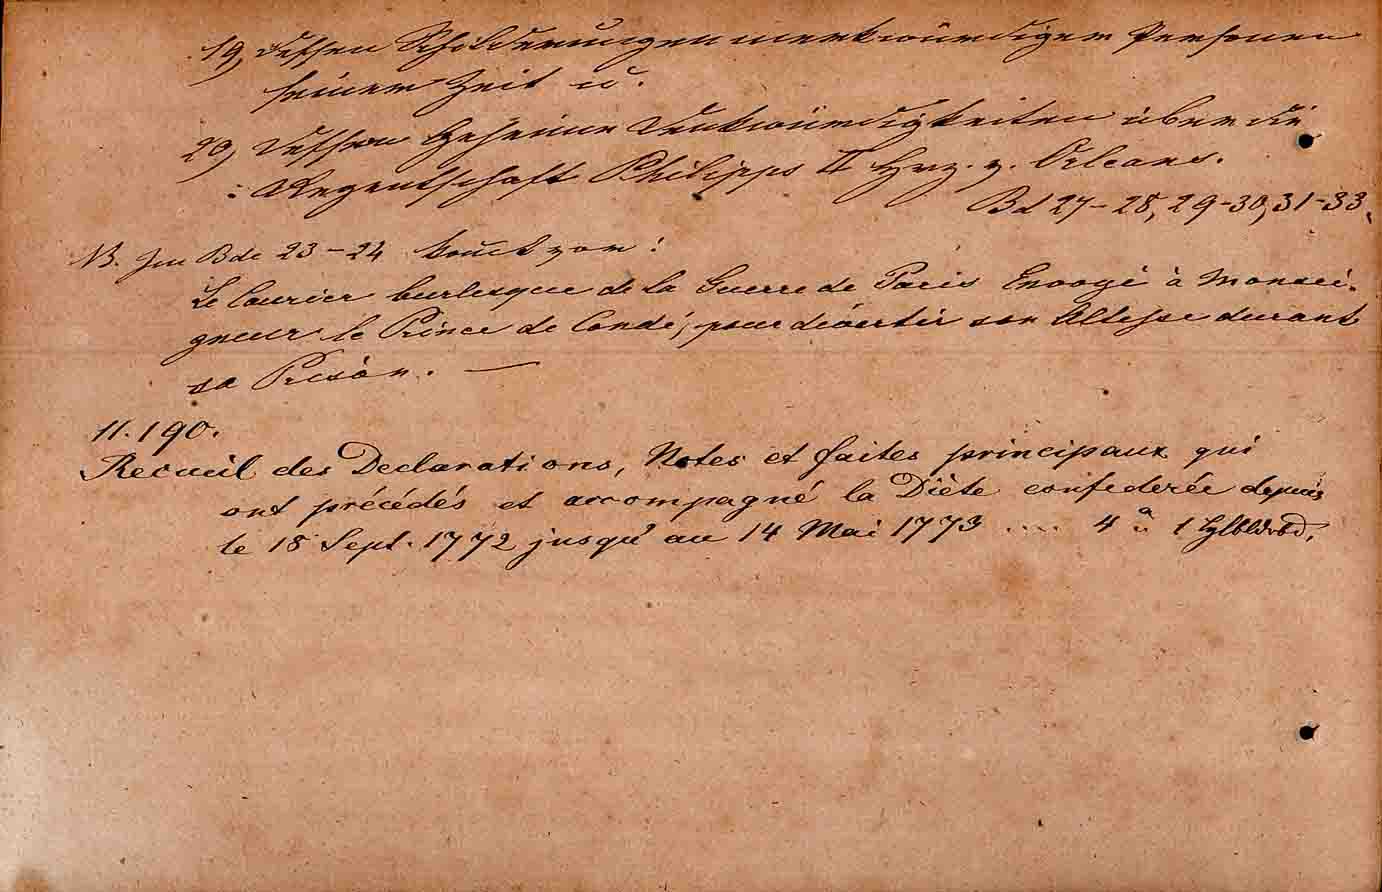 19, Dessen Schilderungen merkwürdiger Personen
seiner Zeit u.
20, Dessen Geheime Denkwürdigkeiten über die
Regentschaft Philipps II Hrz. v. Orleans.
Bd 27-28, 29-30, 31-33.
NB. Im Bde 23-24 kommt vor:
Le Courier burlesque de la Guerre de Paris Envoyé à Monsei-
gneur le Prince de Condé, pour divertir son Altesse durant
sa Prison. —
11.190.
Recueil des Declarations, Notes et faites principaux qui
ont précédés et accompagné la Diète confederée depuis
le 18 Sept. 1772 jusqu'au 14 Mai 1773 .... 4° .. 1